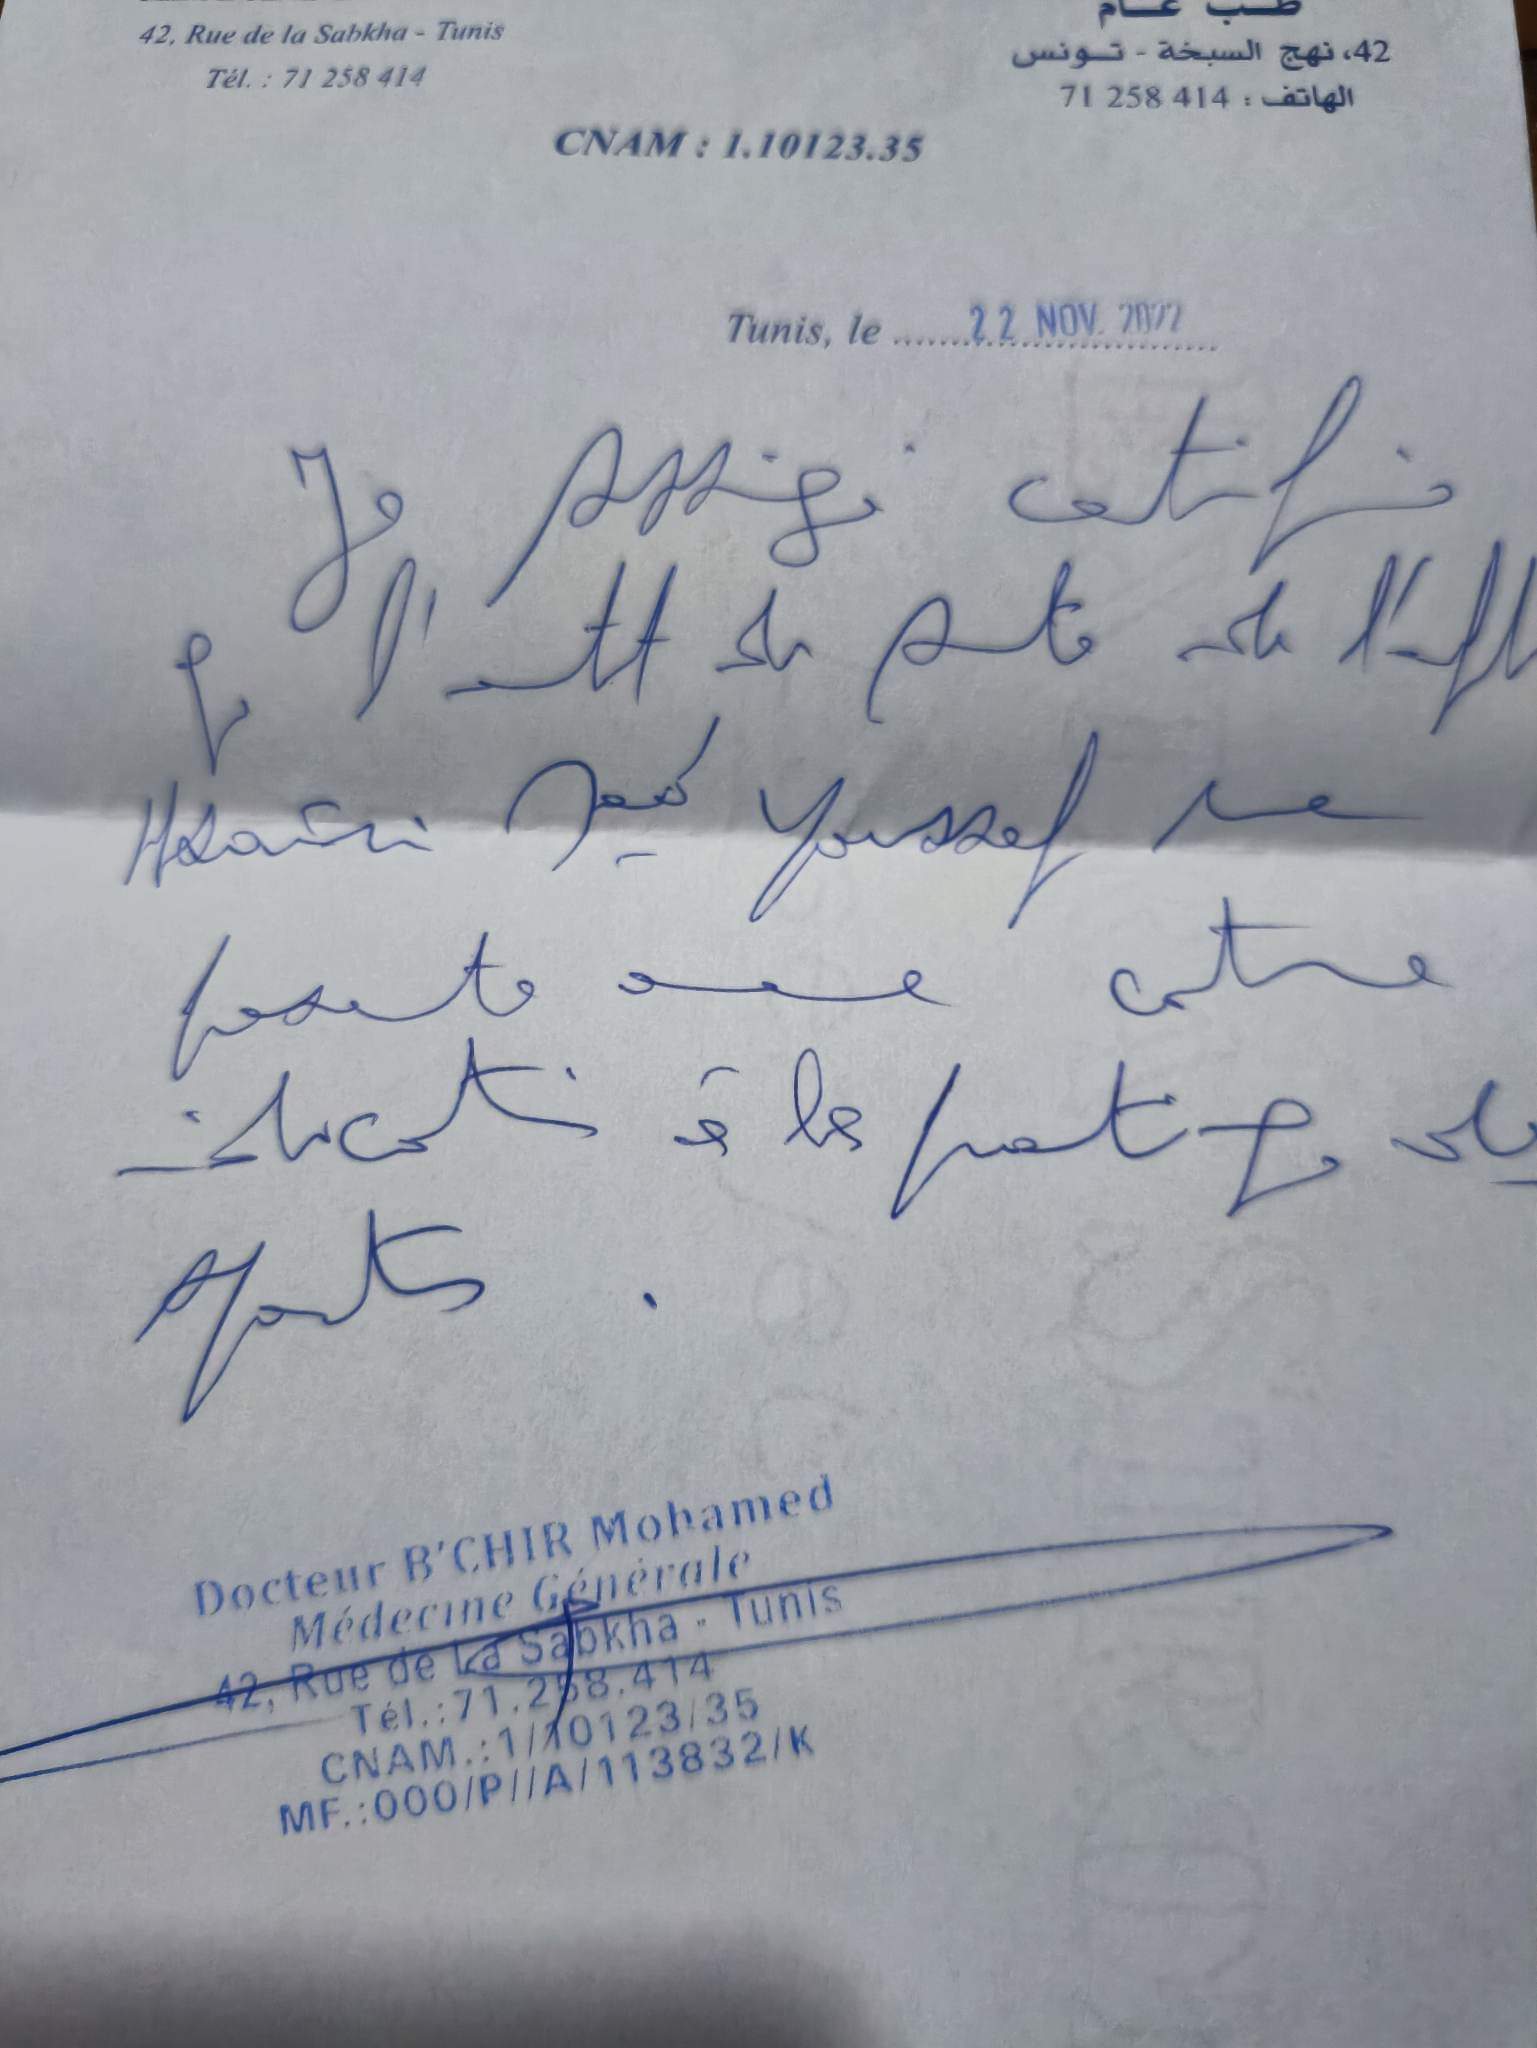 42, Rue de la Sabkha - Tunis
Tél. : 71 258 414
طب عام
42، نهج السبخة - تونس
الهاتف : 71 258 414
CNAM : 1.10123.35
Tunis, le ........ 22 NOV. 2022
Je soussigné certifie
q l'état de santé de l'
Youssef ne
présente aucune contre
indication à la pratique des
sports .
Docteur B'CHIR Mohamed
Médecine Générale
42, Rue de La Sabkha - Tunis
Tél.:71.258.414
CNAM.:1/10123/35
MF.:000/P//A/113832/K